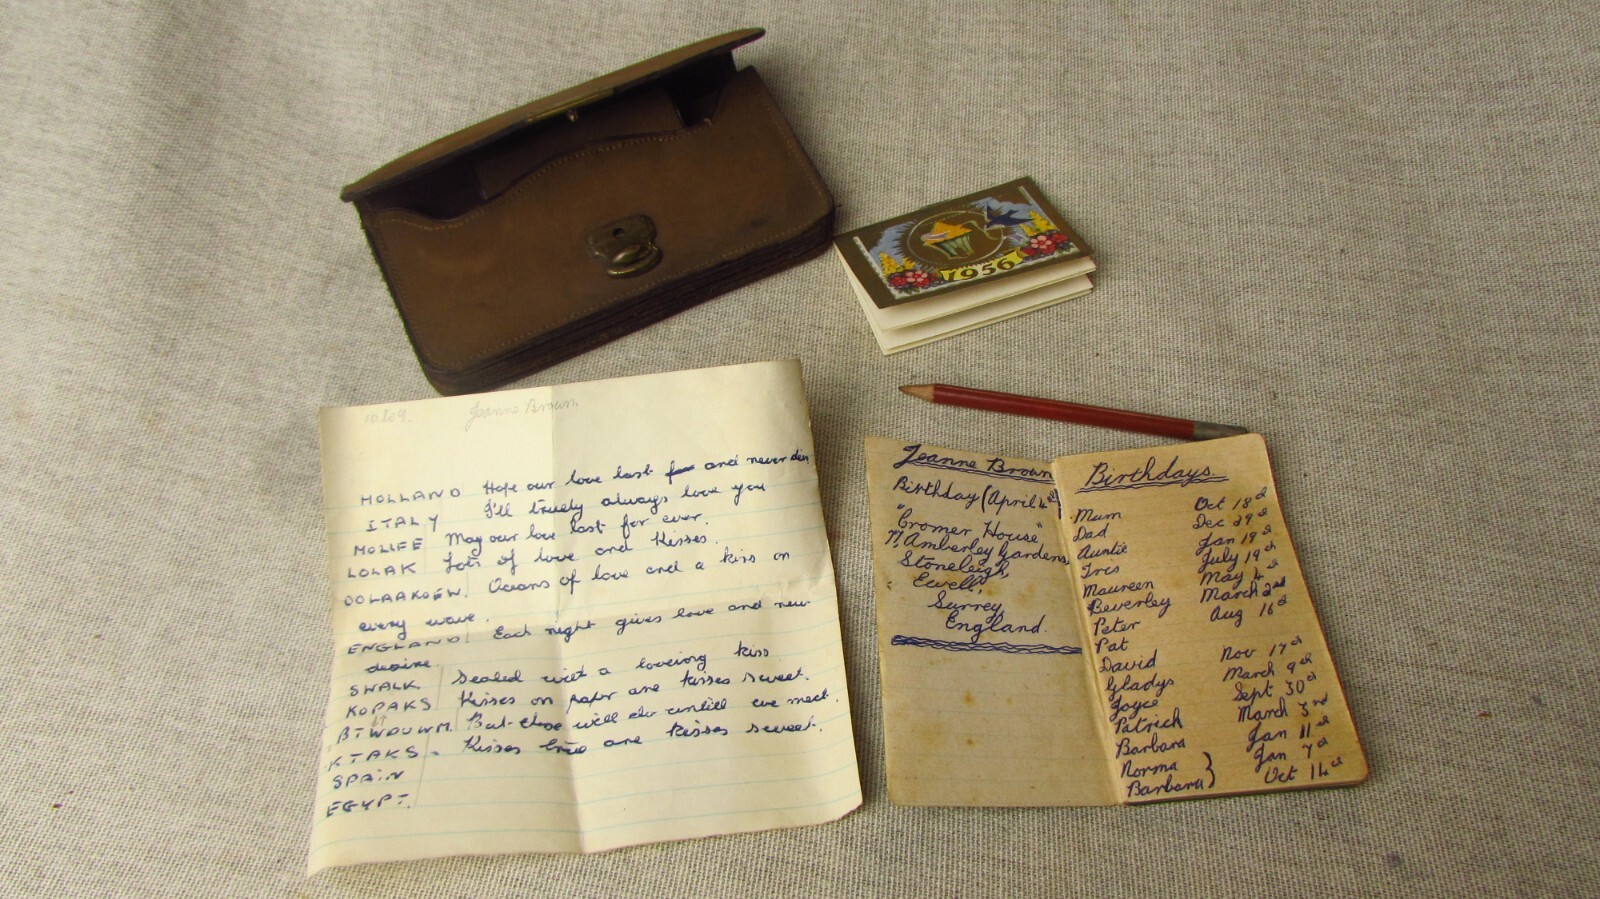 1956
Jeanne Brown
HOLLAND Hope our love last and never dies
ITALY I'll truely always love you
HOLLFE May our love last for ever.
LOLAK Lots of love and Kisses.
OOLAAKOEW. Oceans of love and a kiss on
every wave.
ENGLAND! Each night gives love and new
desire.
SWALK. Sealed wit a loveiong kiss
KOPAKS Kisses on paper are kisses sweet.
BTWDUWM. But these will do untill we meet.
KTAKS. Kisses true are kisses sweet.
SPAIN
EGYPT.
Jeanne Brown
Birthday (April 4th)
"Cromer House"
Amberley Gardens,
Stoneleigh,
Ewell,
Surrey,
England.
Birthdays.
Mum Oct 18th
Dad Dec 29th
Auntie Jan 19th
Iris July 19th
Maureen May 4th
Beverley March 2nd
Peter Aug 16th
Pat
David Nov 17th
Gladys March 9th
Joyce Sept 30th
Patrick March 3rd
Barbara Jan 11th
Norma } Jan 7th
Barbara } Oct 14th